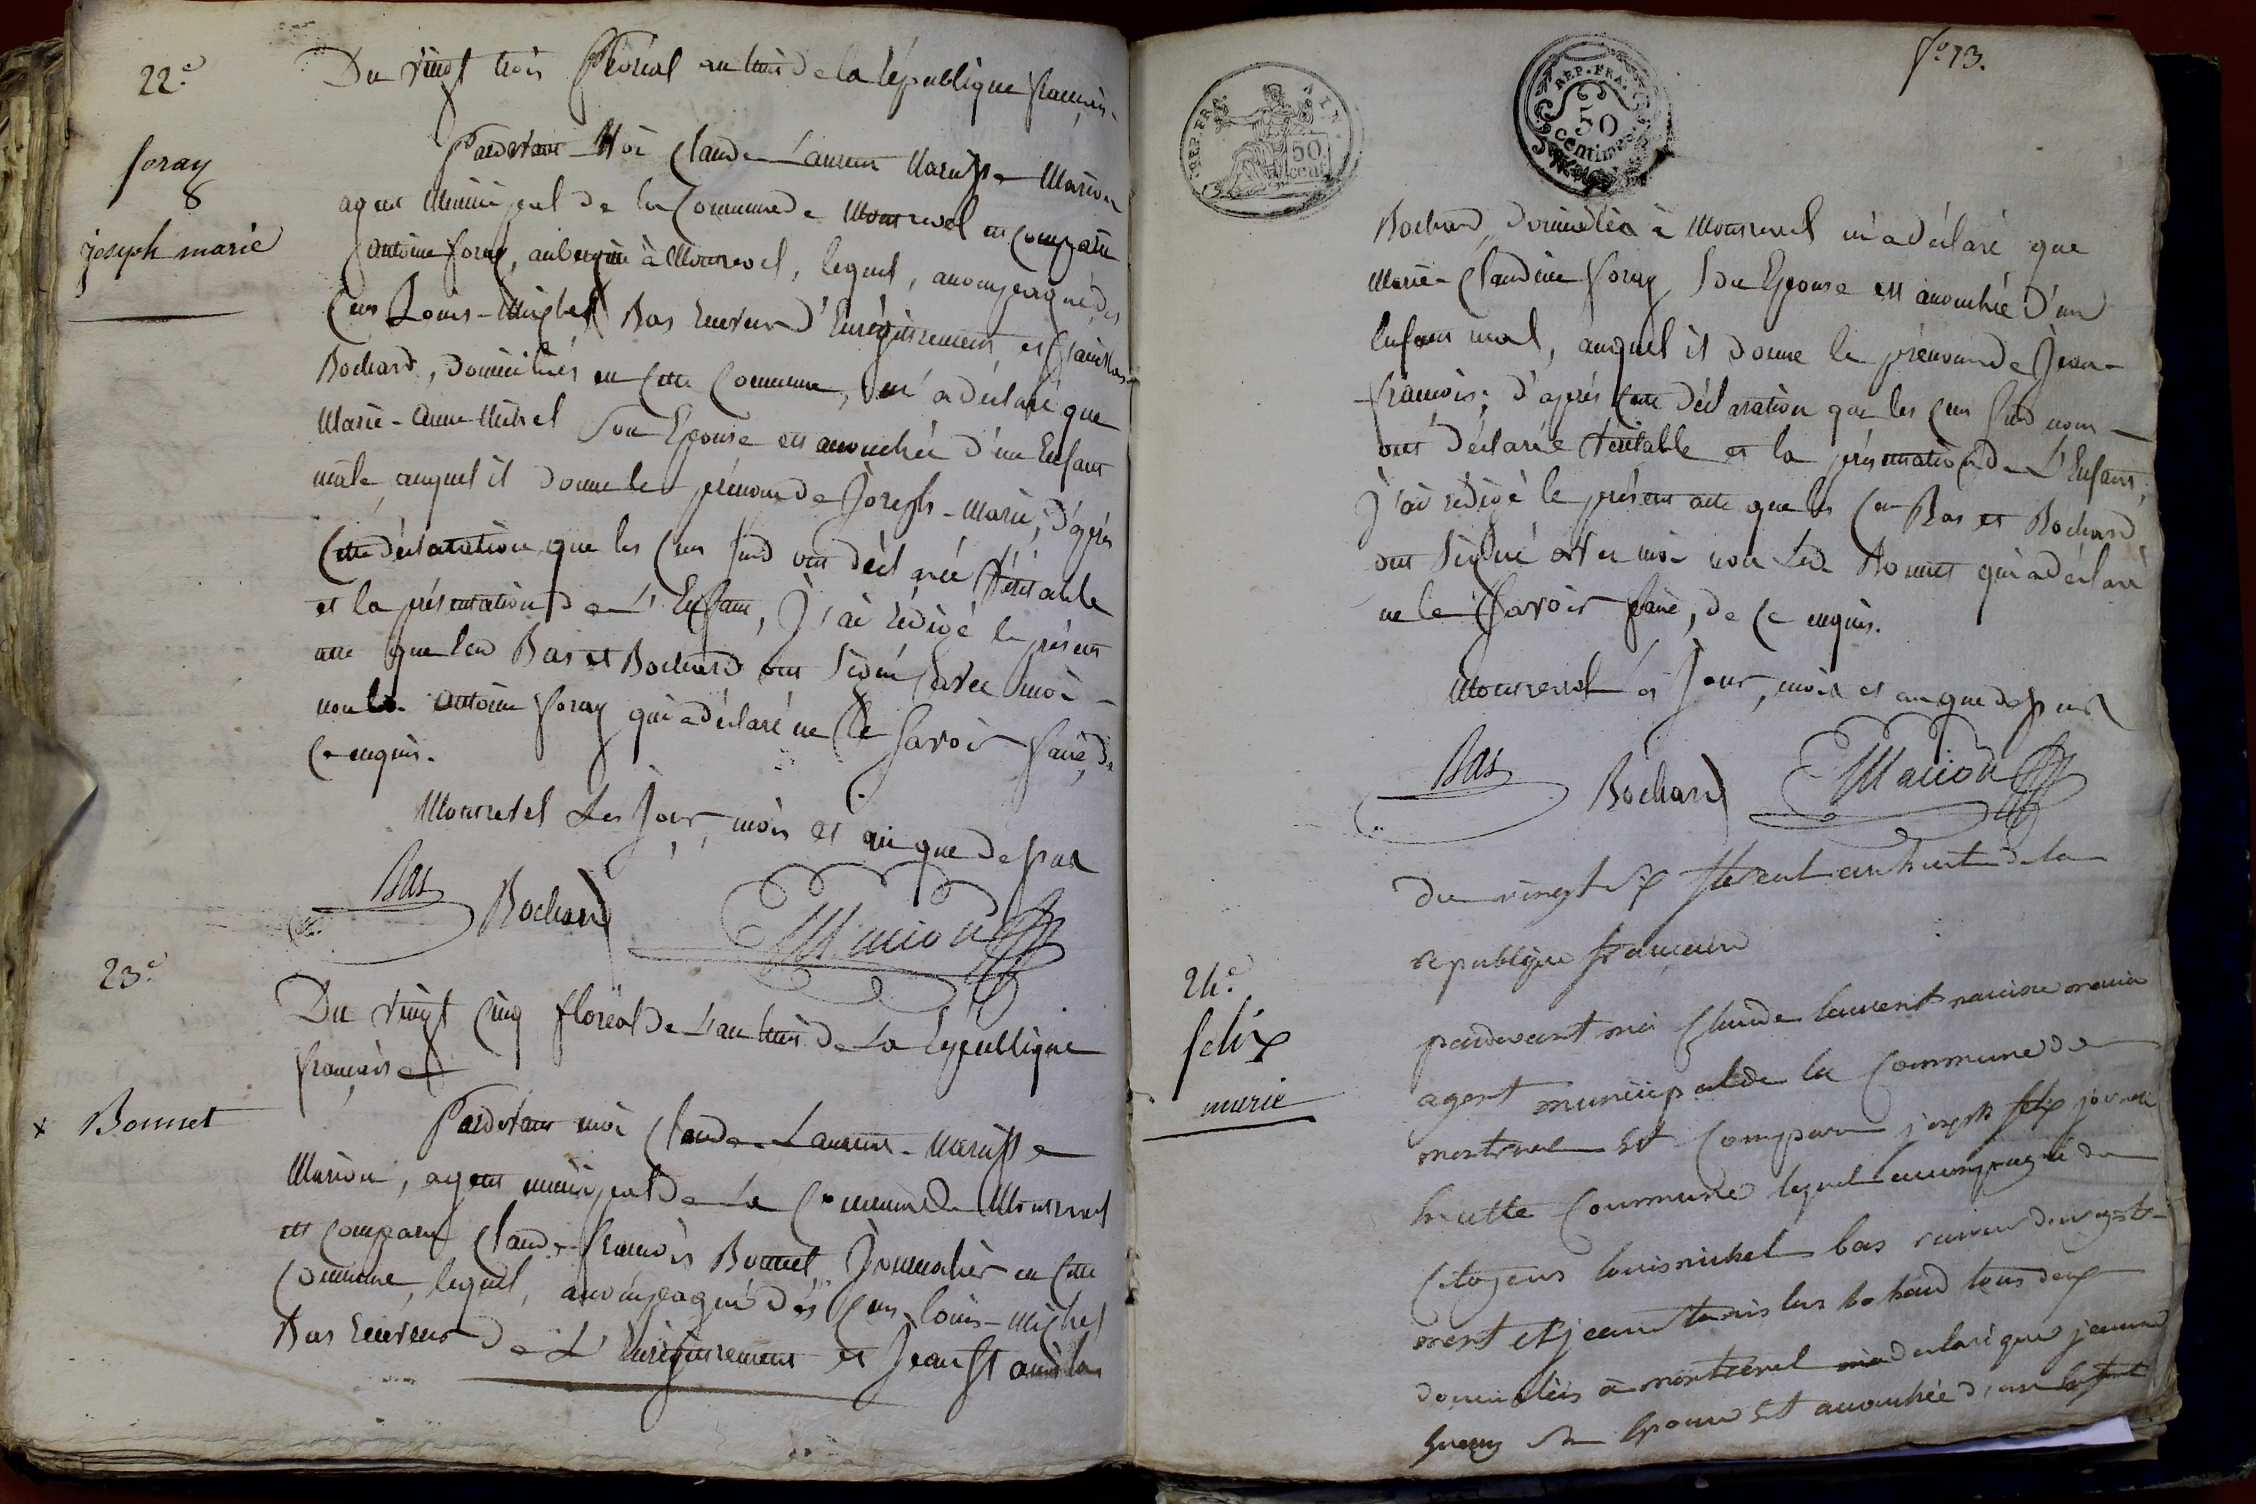 22.e
foray
joseph marie
Du vingt trois floréal an huit de la république françoise
Pardevant Moi Claude Laurent Marcisse Marion
agent Municipal de la Commune de Montrevel est comparu
Antoine foray, aubergiste à Montrevel, lequel, accompagné des
Cens Louis-Michel Bas Receveur d'Enrégistrement, et Stanislas
Bochard, domiciliés en Cette Commune, m'a déclaré que
Marie-Anne Michel Son Epouse est accouchée d'un Enfant
mâle auquel il donne le prénom de Joseph-Marie; d'après
Cette déclaration que les Cens Susd ont déclarée Véritable
et la présentation de L'Enfant, J'ai rédigé le présent
acte que lesd Bas et Bochard ont Signé avec moi
non led. Antoine foray qui a déclaré ne le Savoir faire, de
Ce enquis.
Montrevel Les Jour, mois et an que dessus
Bas Bochard Marion
23.e
Du vingt Cinq floréal de L'an huit de La République
françoise
x Bonnet
Pardevant moi Claude Laurent-Marcisse
Marion, agent municipal de La Commune de Montrevel
est comparu Claude-francois Bonnet, Journalier en Cette
Commune, lequel, accompagné des Cens Louis-Michel
Bas Receveur de L'Enrégistrement et Jean Stanislas
fo 13.
REP. FRA.
50
cent
REP. FRA.
50
centimes
Bochard, domiciliés à Montrevel m'a déclaré que
Marie-Claudine foray Son Epouse est accouchée d'un
Enfant mal, auquel il donne le prénom de Jean-
françois; d'après Cette déclaration que les Cens Susd nom
ont déclarée Véritable et la présentation de L'Enfant,
J'ai rédigé le présent acte que les Cen Bas et Bochard
ont Signé avec moi non Led. Bonnet qui a déclaré
ne le Savoir faire, de Ce enquis.
Montrevel les Jour, mois et an que dessus
Bas Bochard Marion
24.e
felix
marie
du vingt six floreal an huit de la
republique francaise
pardevant moi Claude laurent narcisse marion
agent municipal de la Commune de
montrevel est Comparu joseph felix journalier
en cette Commune lequel accompagné de
Citoyens louis michel bas receveur denregistre
ment et jean stanislas bochard tous deux
domiciliés à montrevel m'a declaré que jeanne
son Epouse est accouchée d'un Enfant